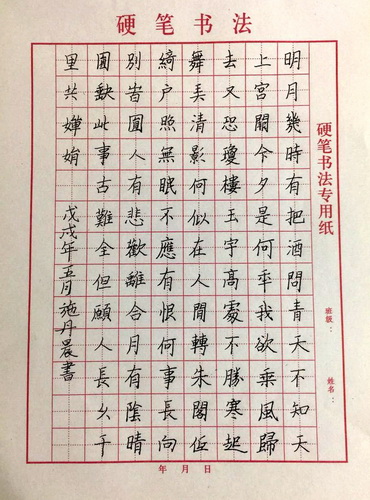 硬笔书法
明月幾時有把酒問青天不知天
上宮闕今夕是何秊我欲乘風歸
去又恐瓊樓玉宇高處不勝寒起
舞弄清影何似在人間轉朱閣低
綺户照無眠不應有恨何事長向
別旹圓人有悲歡離合月有陰晴
圓缺此事古難全但願人長久千
里共嬋娟
戊戌年五月施丹晨書
硬笔书法专用纸
班级：
姓名：
年月日